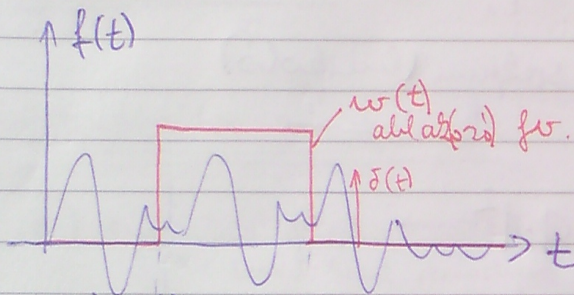 f(t)
w(t)
ablak(ozó) fv.
δ(t)
t